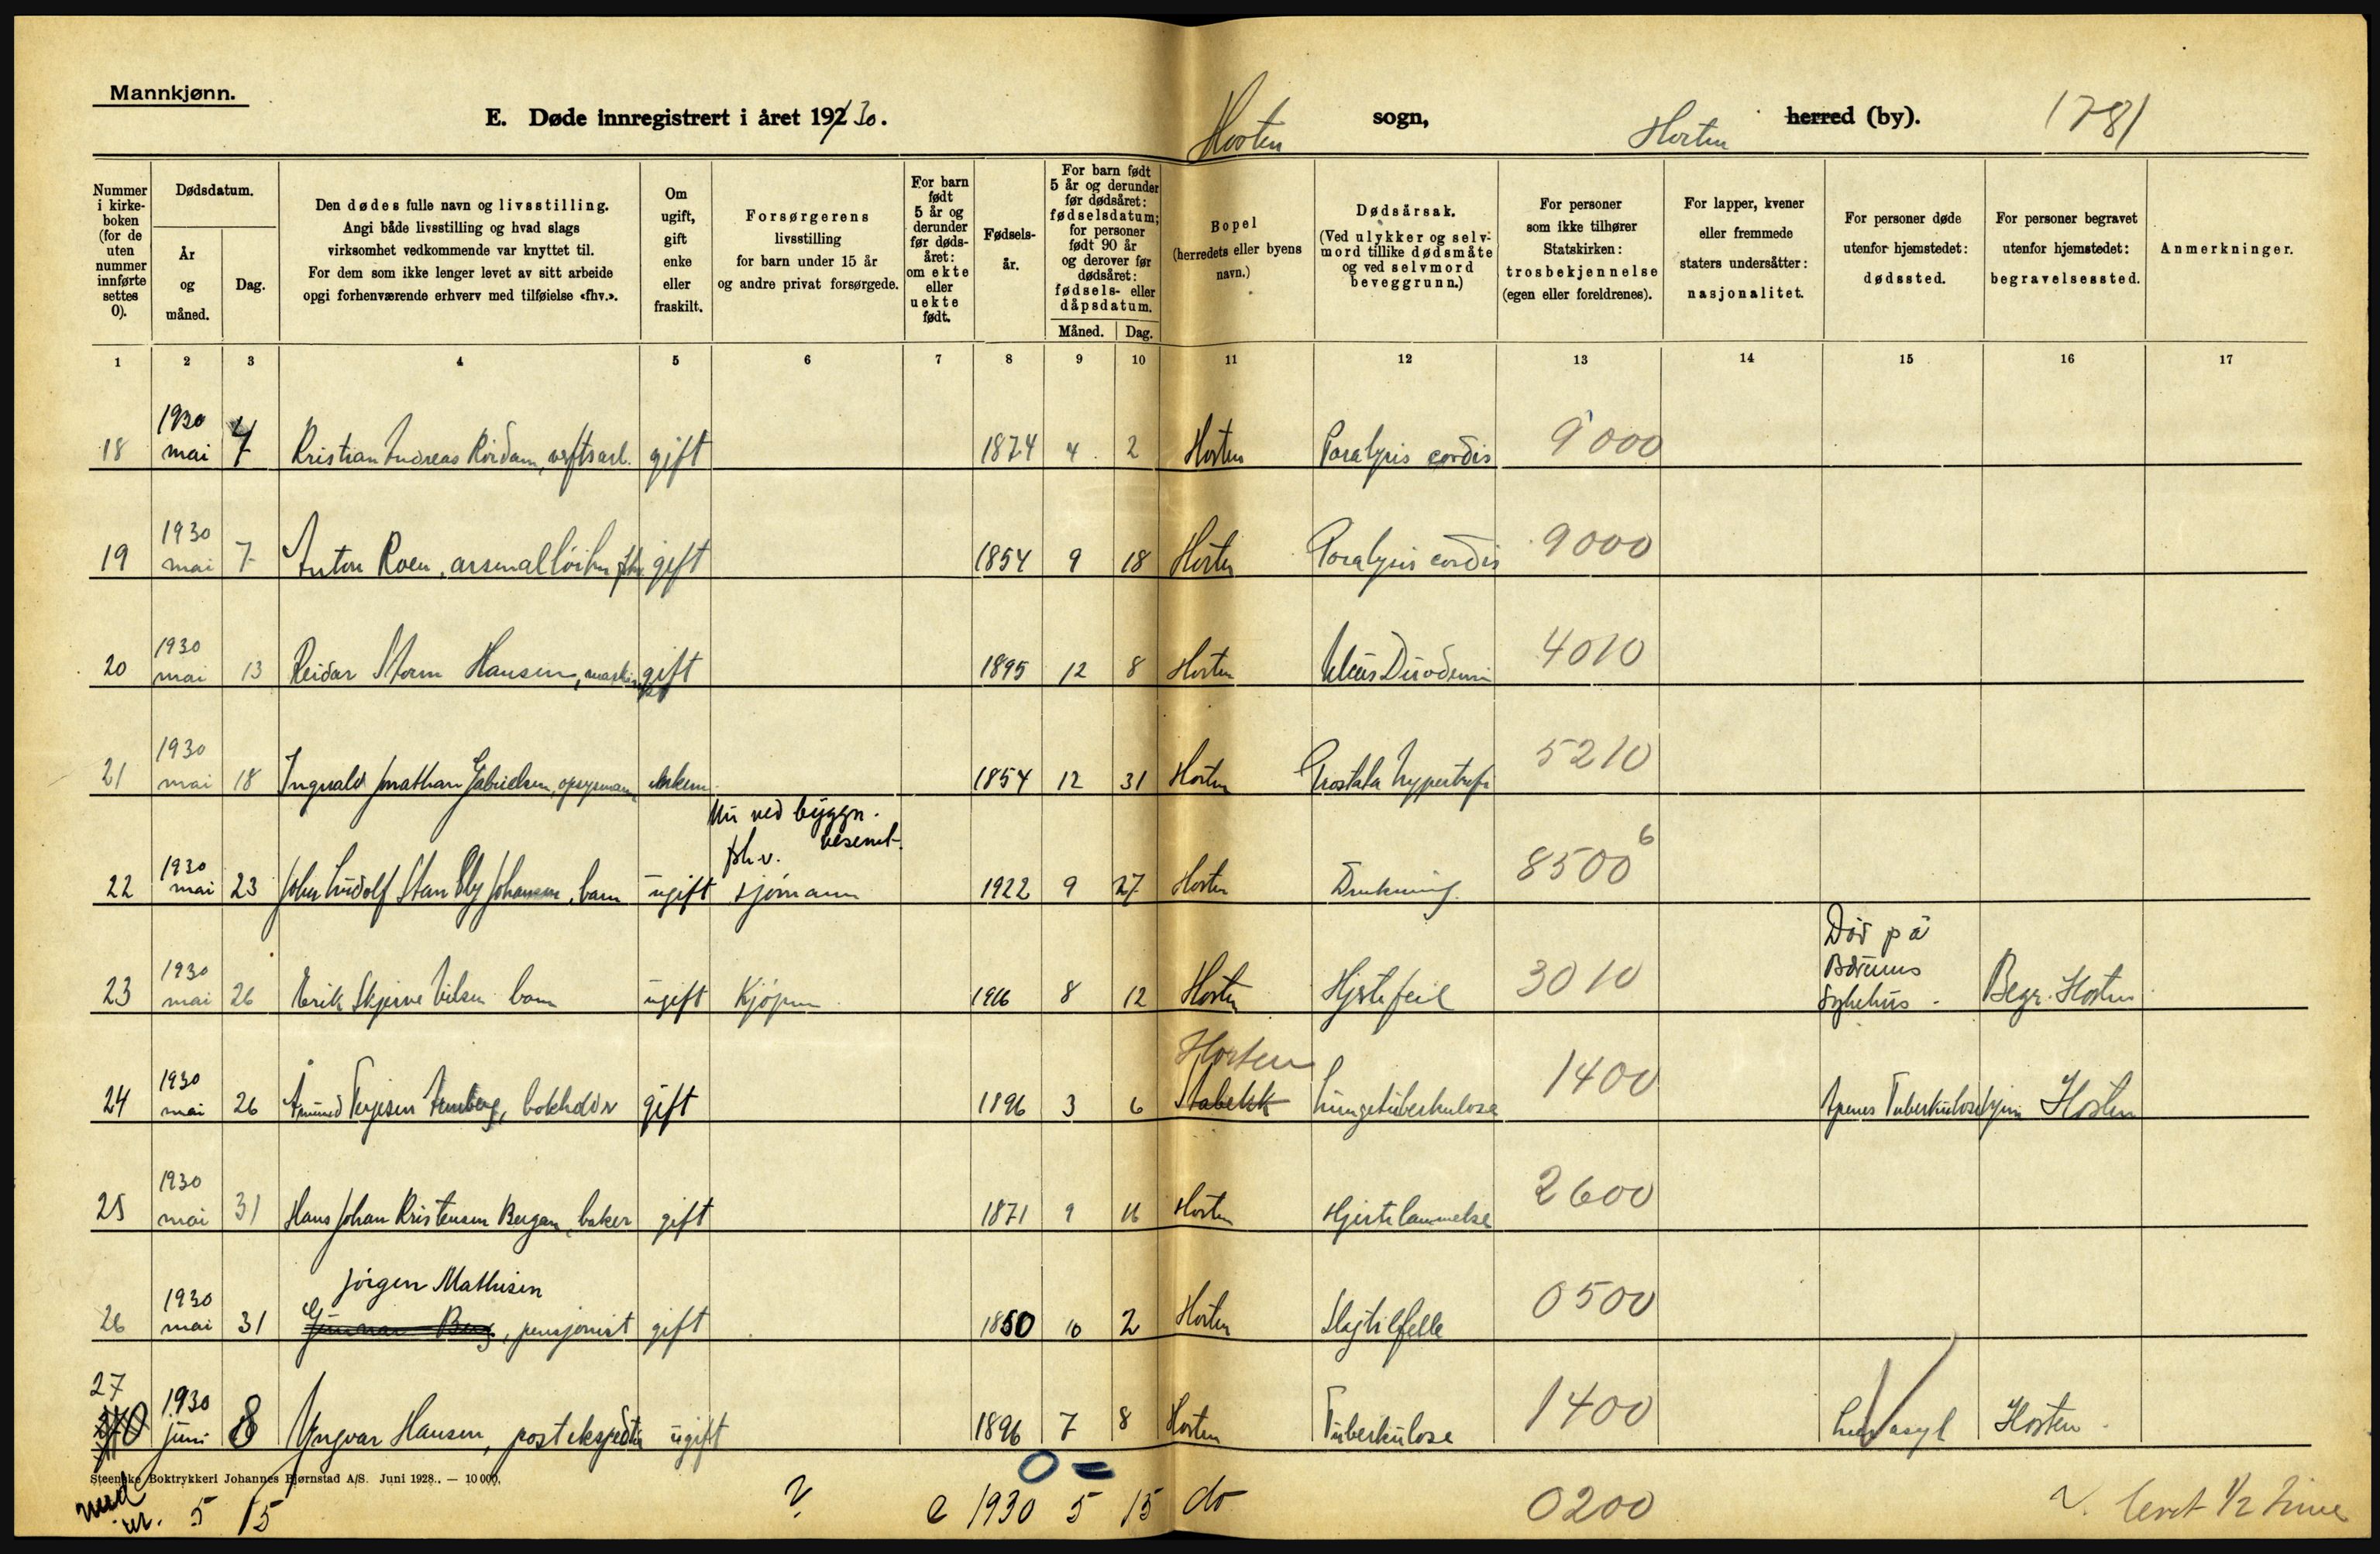 Mannkjønn.
E. Døde innregistrert i året 192 30.
Horten sogn,
Horten herred (by).
1781
Nummer i kirkeboken (for de uten nummer innførte settes 0).
Dødsdatum.
År og måned.
Dag.
Den dødes fulle navn og livsstilling.
Angi både livsstilling og hvad slags
virksomhet vedkommende var knyttet til.
For dem som ikke lenger levet av sitt arbeide
opgi forhenværende erhverv med tilføielse «fhv.».
Om ugift, gift enke eller fraskilt.
Forsørgerens
livsstilling
for barn under 15 år
og andre privat forsørgede.
For barn født 5 år og derunder før dødsåret: om ekte eller uekte født.
Fødselsår.
For barn født 5 år og derunder før dødsåret: fødselsdatum; for personer født 90 år og derover før dødsåret: fødsels- eller dåpsdatum.
Måned. Dag.
Bopel
(herredets eller byens
navn.)
Dødsårsak.
(Ved ulykker og selvmord tillike dødsmåte og ved selvmord beveggrunn.)
For personer
som ikke tilhører
Statskirken:
trosbekjennelse
(egen eller foreldrenes).
For lapper, kvener
eller fremmede
staters undersåtter:
nasjonalitet.
For personer døde
utenfor hjemstedet:
dødssted.
For personer begravet
utenfor hjemstedet:
begravelsessted.
Anmerkninger.
1 2 3 4 5 6 7 8 9 10 11 12 13 14 15 16 17
18 1930 mai 7 Kristian Andreas Rördam, verftsarb. gift 1874 4 2 Horten Paralysis cordis 9000
19 1930 mai 7 Anton Roen, fhv. gift 1854 9 18 Horten Paralysis cordis 9000
20 1930 mai 13 Reidar Storm Hansen, gift 1895 12 8 Horten Ulcus Duodenni 4010
21 1930 mai 18 Ingvald Jonathan Gabrielsen, opsynsmann enkem. 1854 12 31 Horten Prostata hypertrofi 5210
Nu ved byggn.
vesenet.
fhv.
22 1930 mai 23 John Ludolf Johansen, barn ugift sjømann 1922 9 27 Horten Drukning 8500 6
23 1930 mai 26 Erik Skjerve Nilsen barn ugift Kjøpm. 1916 8 12 Horten Hjertefeil 3010 Död på Bærums Sykehus - Begr. Horten
Horten
24 1930 mai 26 Amund Terjesen, bokholder gift 1896 3 6 Stabekk Lungetuberkulose 1400 Tuberkulosehjem Horten
25 1930 mai 31 Hans Johan Kristensen Bergan, baker gift 1871 9 16 Horten Hjertelammelse 2600
Jörgen Mathisen
26 1930 mai 31 Gunnar Berg, pensjonist gift 1850 10 2 Horten Slagtilfelle 0500
27 1930 juni 8 Yngvar Hansen, postekspeditør ugift 1896 7 8 Horten Tuberkulose 1400 Horten
Steenske Boktrykkeri Johannes Bjørnstad A/S. Juni 1928. — 10 000.
5 15 e 1930 5 15 do 0200 levet 1/2 time